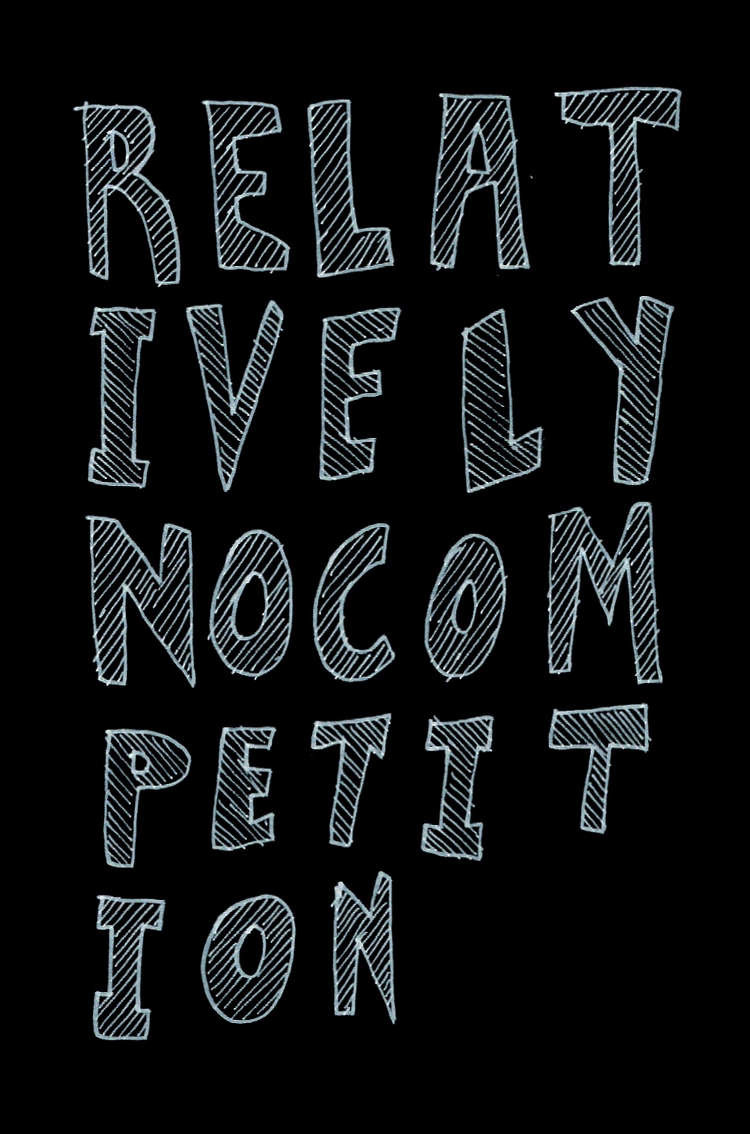 RELAT
IVELY
NOCOM
PETIT
ION